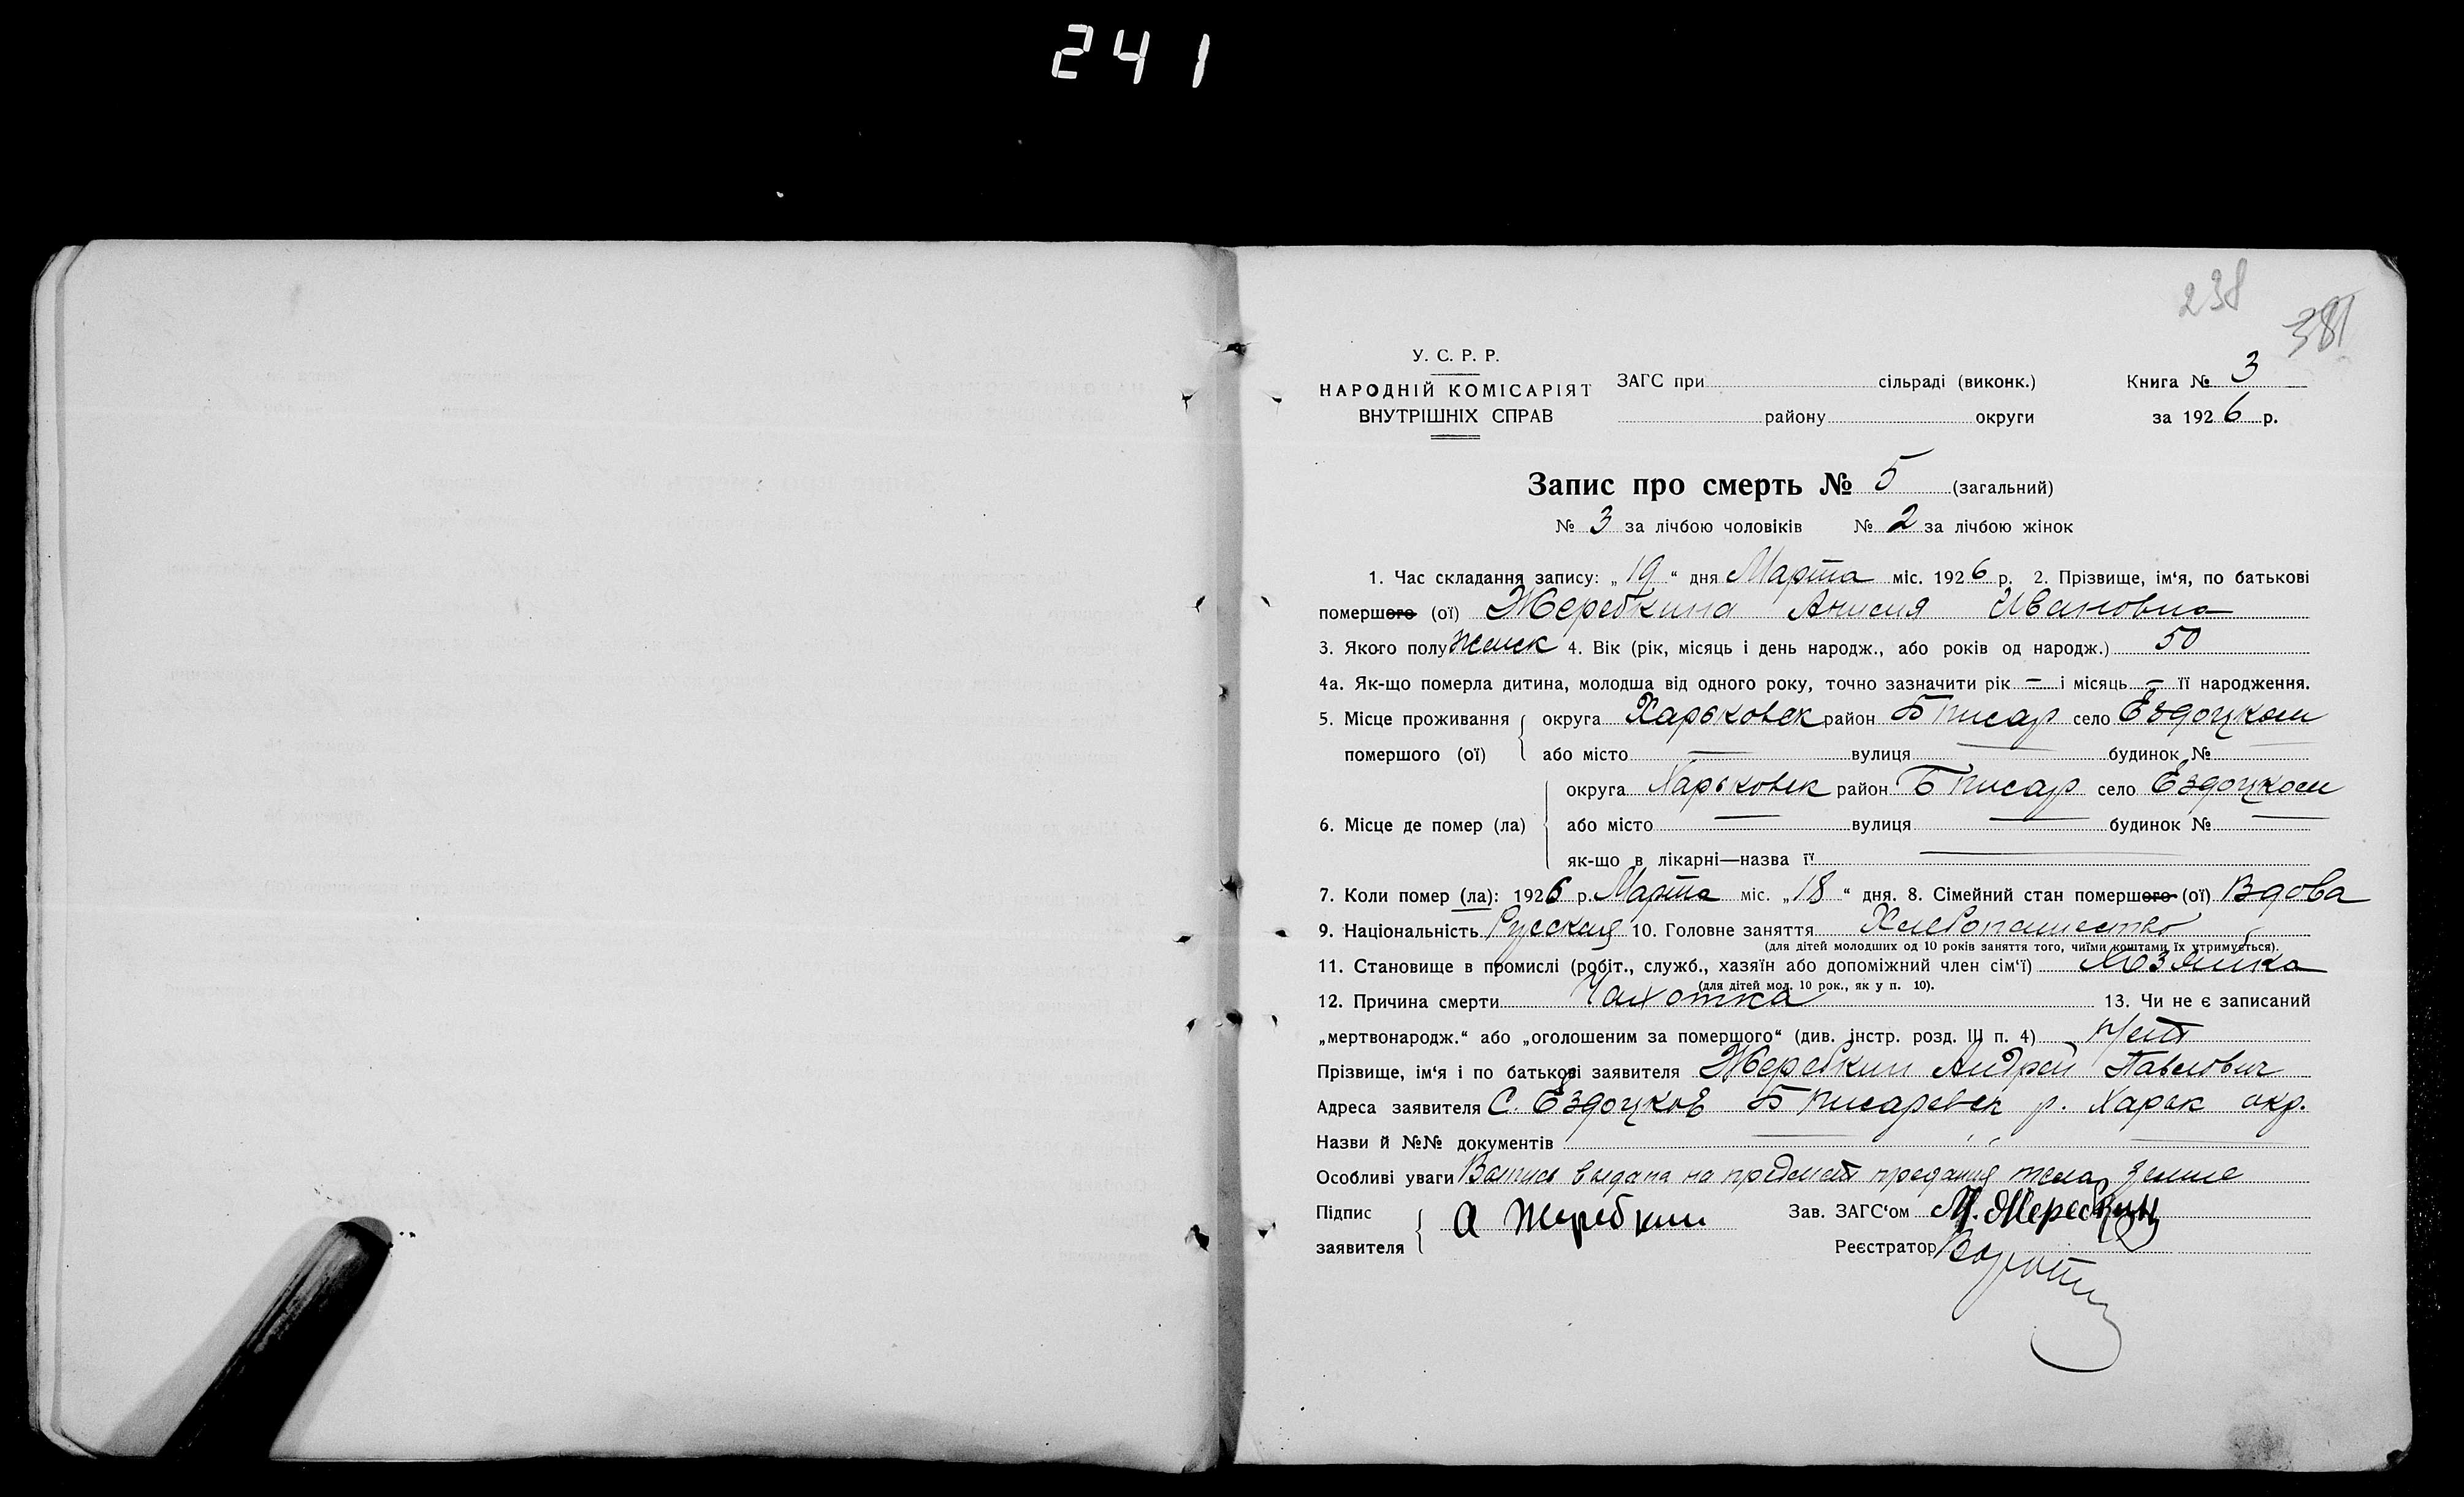 241
238
381
У. С. Р. Р.
НАРОДНІЙ КОМІСАРІЯТ
ВНУТРІШНІХ СПРАВ
ЗАГС при сільраді (виконк.)
району округи
Книга № 3
за 1926 р.
Запис про смерть № 5 (загальний)
№ 3 за лічбою чоловіків № 2 за лічбою жінок
1. Час складання запису: „19“ дня Марта міс. 1926 р. 2. Прізвище, ім‘я, по батькові
помершого (ої) Жеребкина Анисия Ивановна
3. Якого полу Женск 4. Вік (рік, місяць і день народж., або років од народж.) 50
4а. Як-що померла дитина, молодша від одного року, точно зазначити рік — і місяць — її народження.
5. Місце проживання помершого (ої) округа Харьковск район Б Писар село Ездоцком
або місто — вулиця — будинок № —
6. Місце де помер (ла) округа Харьковск район Б Писар село Ездоцком
або місто — вулиця — будинок № —
як-що в лікарні—назва її —
7. Коли помер (ла): 1926 р. Марта міс. „18“ дня. 8. Сімейний стан помершого (ої) Вдова
9. Національність Русская 10. Головне заняття Хлебопашество
(для дітей молодших од 10 років заняття того, чиїми коштами їх утримується).
11. Становище в промислі (робіт., служб., хазяїн або допоміжний член сім‘ї) Хозяйка
(для дітей мол. 10 рок., як у п. 10).
12. Причина смерти Чахотка 13. Чи не є записаний
„мертвонародж.“ або „оголошеним за помершого“ (див. інстр. розд. III п. 4) Нет
Прізвище, ім‘я і по батькові заявителя Жеребкин Андрей Павлович
Адреса заявителя С. Ездоцков Б Писаревск р. Харьк окр.
Назви й №№ документів —
Особливі уваги выдана на предмет предания тела земле
Підпис заявителя А Жеребкин
Зав. ЗАГС‘ом
Реєстратор